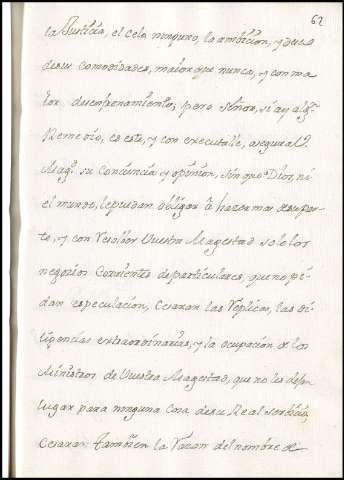 62
la Justicia, el celo ninguno, la ambicion, y
de su comodidades, maior que nunca, y con ma
ior desenfrenamiento; pero señor, si ay alg.
Remedio, es este, y con executalle, asegura V.
Mag.d su conciencia y opinion, sin que Dios, ni
el mundo, le puedan obligar â hazer mas de su par
te, y con resoluer Vuestra Magestad solo los
negocios corrientes de particulares, que no pi
dan especulacion, Cesaran las replicas, las di
ligencias extraordinarias, y la ocupacion de los
Ministros de Vuestra Magestad, que no les dejan
lugar para ninguna cosa de su Real seruicio,
Cesara tambien la razon del nombre de